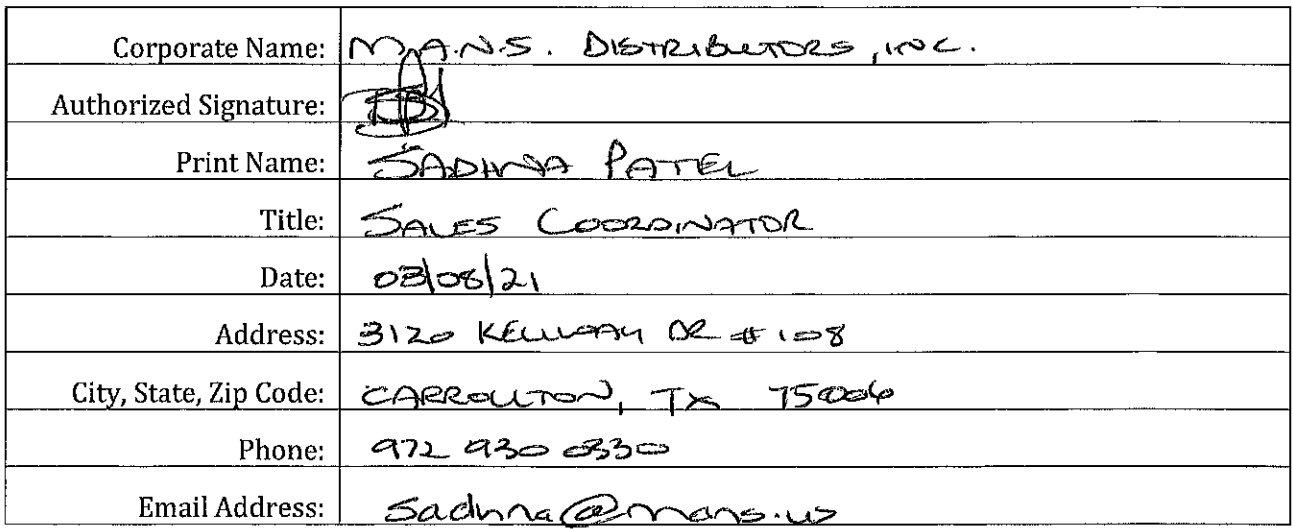 Corporate Name: M.A.N.S. DISTRIBUTORS, INC.
Authorized Signature:
Print Name: SADHNA PATEL
Title: SALES COORDINATOR
Date: 03/08/21
Address: 3120 KELLWAY DR # 108
City, State, Zip Code: CARROLLTON, TX 75006
Phone: 972 930 0330
Email Address: Sadhna@mans.us